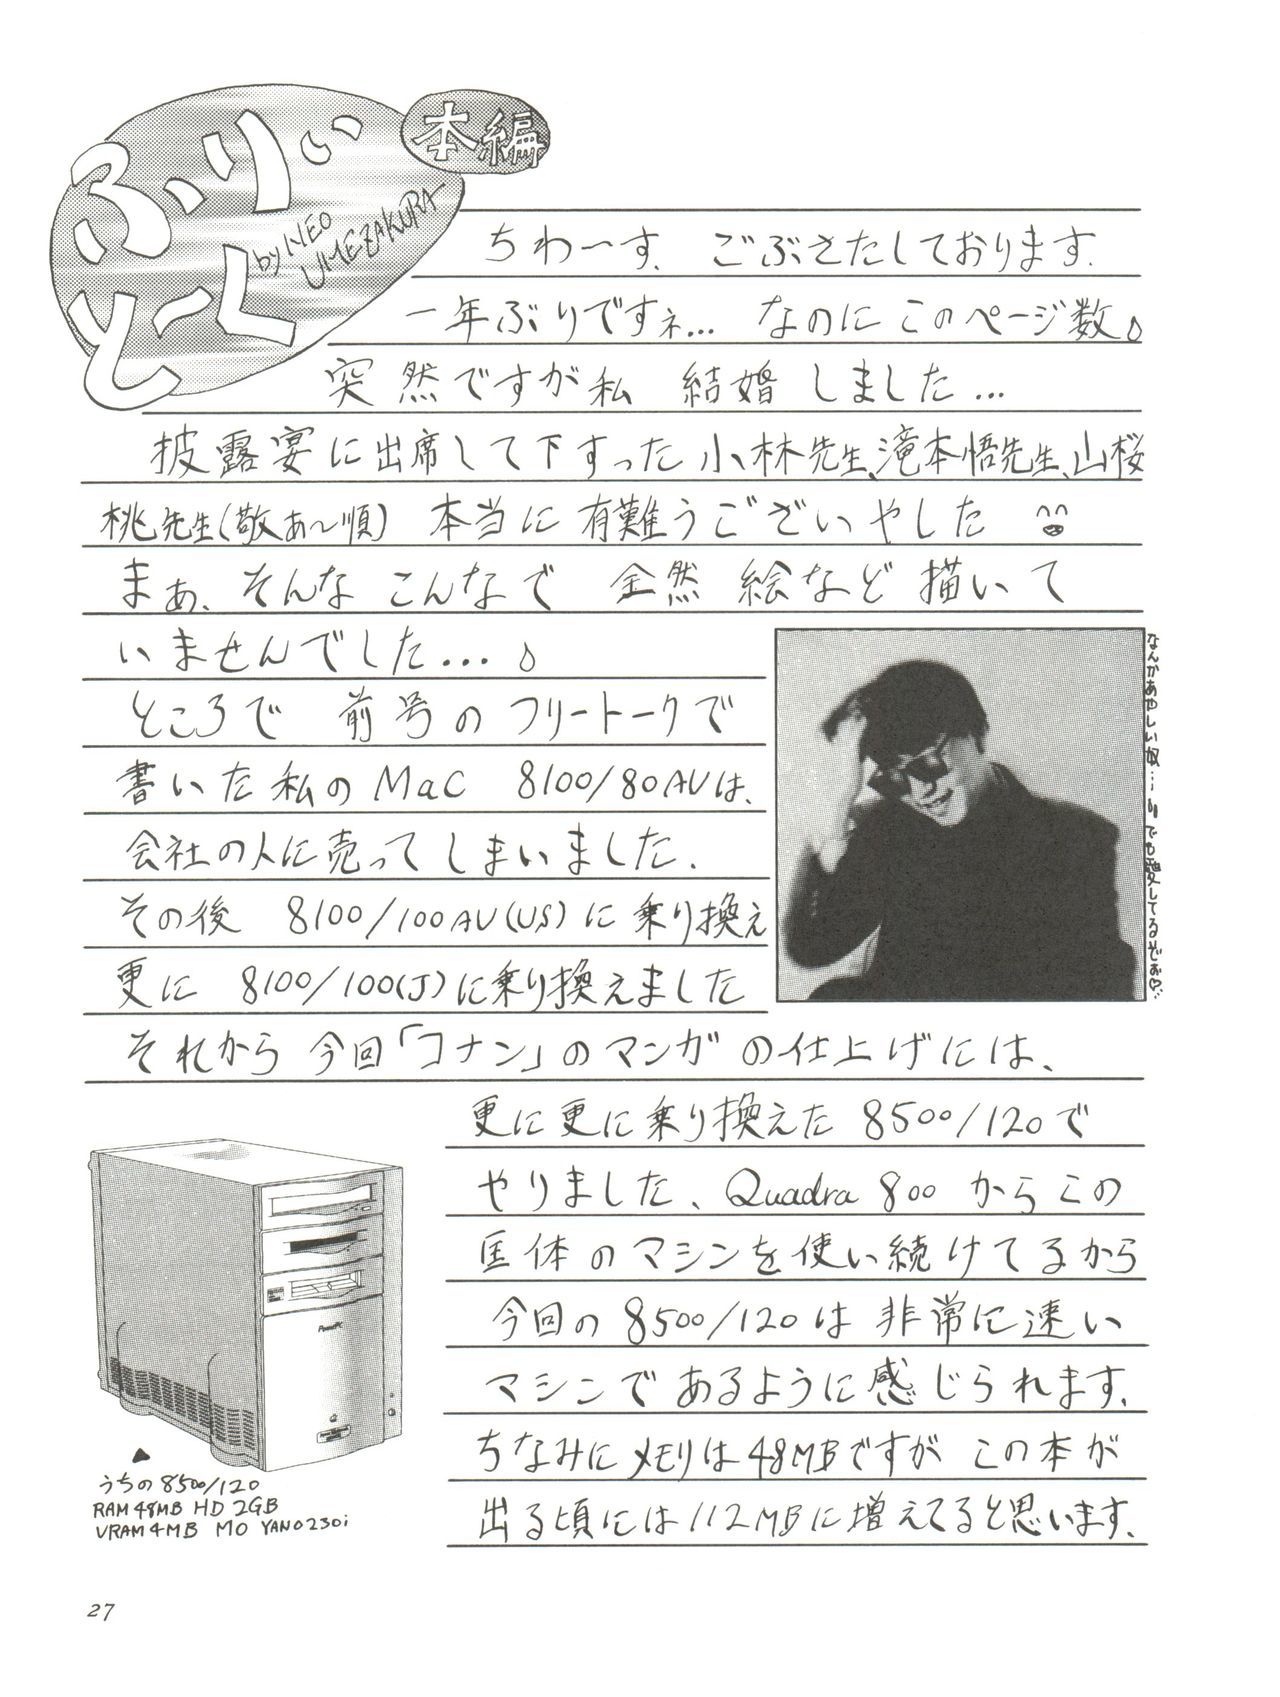 ふりぃ
とーく
本編
by NEO
UMEZAKURA
ちわーす、ごぶさたしております。
一年ぶりですネ… なのにこのページ数♪
突然ですが私 結婚しました…
披露宴に出席して下すった小林先生、滝本悟先生、山桜
桃先生(敬あ〜順) 本当に有難うございやした
まぁ、そんなこんなで 全然 絵など描いて
いませんでした…♪
ところで 前号のフリートークで
書いた私のMac 8100/80AVは、
会社の人に売ってしまいました、
その後 8100/100AV(US)に乗り換え
更に 8100/100(J)に乗り換えました
それから今回「コナン」のマンガの仕上げには、
更に更に乗り換えた 8500/120で
やりました、Quadra 800からこの
匡体のマシンを使い続けてるから
今回の8500/120は非常に速い
マシンであるように感じられます、
ちなみにメモリは48MBですが この本が
出る頃には112MBに増えてると思います、
なんかあやしい奴…〃でも愛してるぞぉ♡
PowerPC
うちの8500/120
RAM 48MB HD 2GB
VRAM 4MB MO YANO230i
27